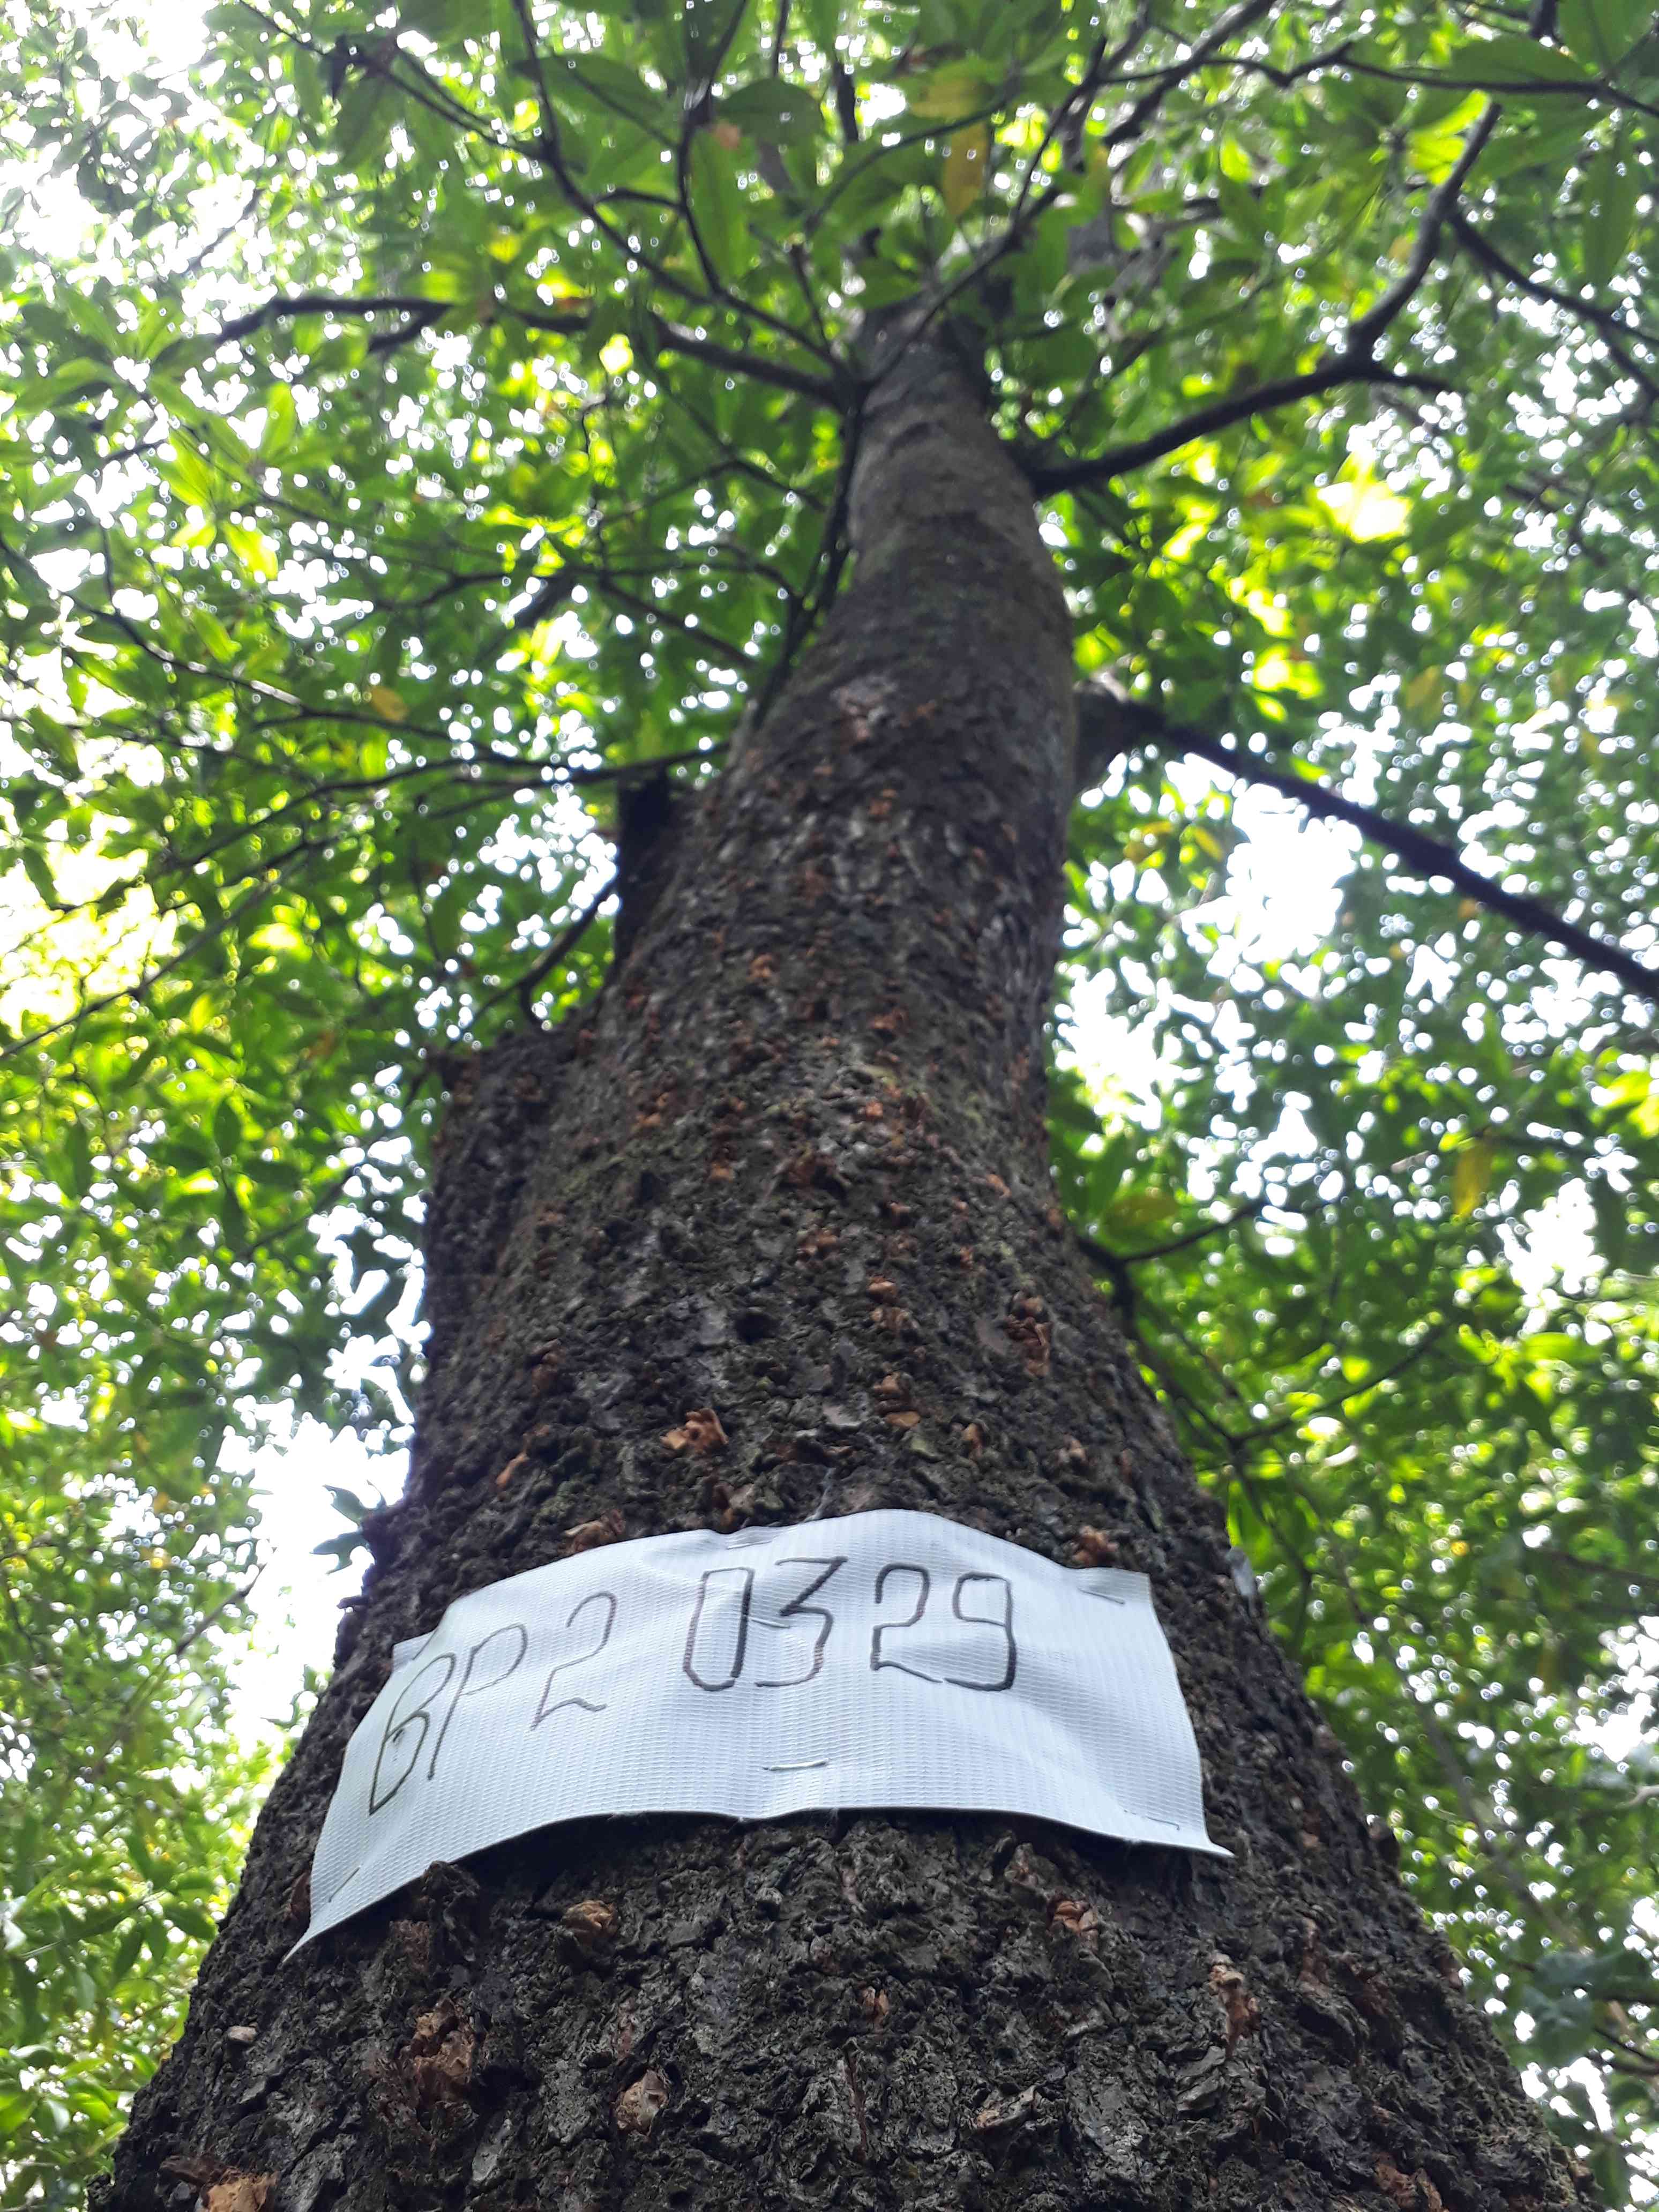 BP2 0329